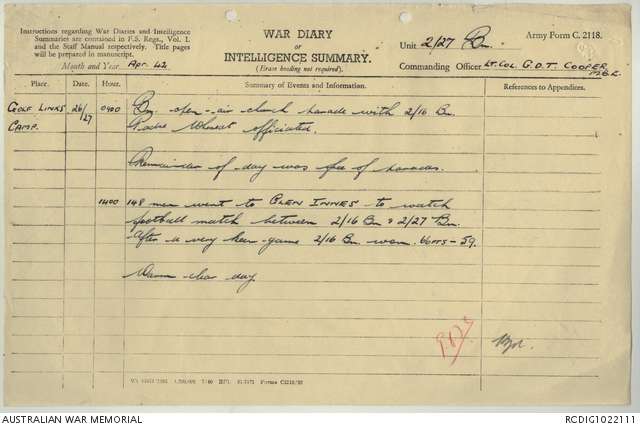 Instructions regarding War Diaries and Intelligence
Summaries are contained in F.S. Regs., Vol. I.
and the Staff Manual respectively. Title pages
will be prepared in manuscript.
Month and Year Apr. 42
WAR DIARY
OR
INTELLIGENCE SUMMARY.
(Erase heading not required).
Army Form C. 2118.
Unit 2/27 Bn.
Commanding Officer Lt. Col. G.D.T. COOPER
M.B.E.
Place. Date. Hour. Summary of Events and Information. References to Appendices.
GOLF LINKS 26/27 0900 Bn. open-air church parade with 2/16 Bn.
CAMP. Padre officiated.
Remainder of day was free of parades.
1400 148 men went to GLEN INNES to watch
football match between 2/16 Bn & 2/27 Bn.
After a very keen game 2/16 Bn won. 66pts - 59.
Warm clear day.
AUSTRALIAN WAR MEMORIAL
RCDIG1022111